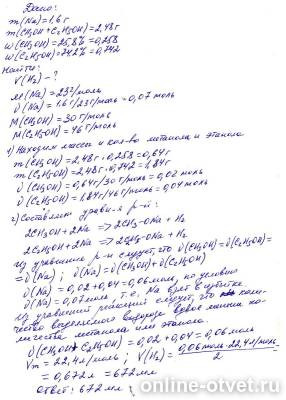 Дано:
m(Na)=1,6 г
m(CH₃OH+C₂H₅OH)=2,48г
w(CH₃OH)=25,8%=0,258
w(C₂H₅OH)=74,2%=0,742
Найти:
V(H₂)-?
M(Na)=23г/моль
ν(Na)=1.6г/23г/моль=0,07 моль
M(CH₃OH)=30 г/моль
M(C₂H₅OH)=46 г/моль
1) Находим массы и кол-во метанола и этанола
m(CH₃OH)=2,48г·0,258=0,64г
m(C₂H₅OH)=2,48г·0,742=1,84г
ν(CH₃OH)=0,64г/30г/моль=0,02 моль
ν(C₂H₅OH)=1,84г/46г/моль=0,04 моль
2) Составляем уравн-я р-й:
2CH₃OH+2Na=>2CH₃-ONa+H₂
2C₂H₅OH+2Na=>2C₂H₅-ONa+H₂
из уравнение р-и следует, что ν(CH₃OH)=ν(C₂H₅OH)=
=ν(Na); ν(Na)=ν(CH₃OH)+ν(C₂H₅OH)
ν(Na)=0,02+0,04=0,06 моль, по условию
ν(Na)=0,07моль, т.е. Na берет в избытке
из уравнений реакций следует, что коли-
чество водорода вдвое меньше ко-
личества метанола или этанола.
ν(CH₃OH+C₂H₅OH)=0,02+0,04=0,06моль
Vm=22,4л/моль; V(H₂)=0,06моль·22,4л/моль/2
=0,672л=672мл
Ответ: 672мл.
online-otvet.ru